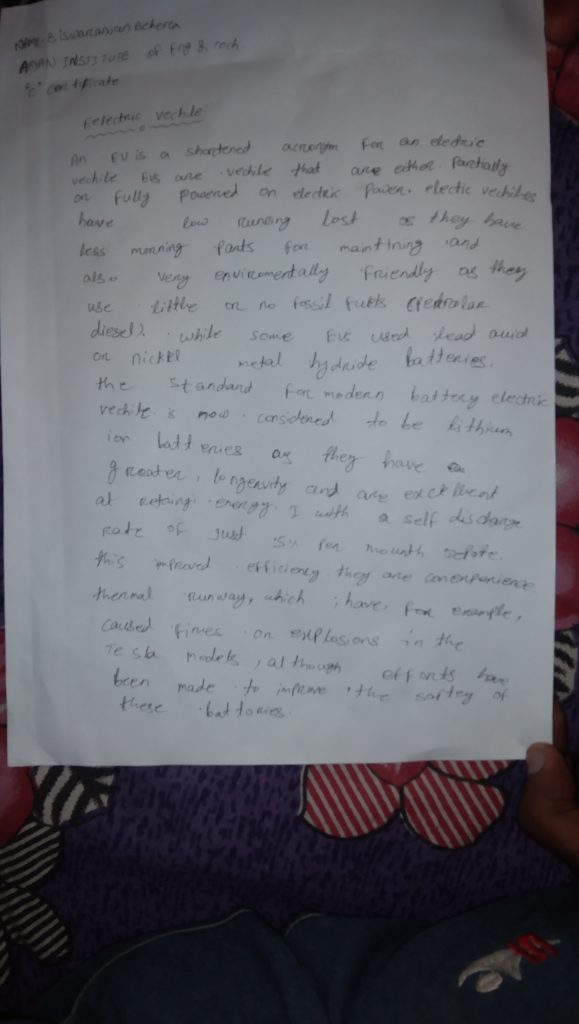 NAME- Biswaranjan Behera
AMAN INSTITUTE of Eng & Tech
"C" certificate
Eelectric vechile
An EV is a shortened acronym for an electric
vechile EVs are vechile that are either Partially
or fully powered on electric power. electic vechiles
have low running Cost as they have
less morning Parts for maintining and
also very enviromentally friendly as they
use little or no fossil fuels (Petrolar
diesel). while some EVs used lead auid
or nickel metal hydride batteries.
the standard for modern battery electric
vechile is now considered to be lithium
ion batteries as they have a
greater, longenvity and are excellent
at retaingi energy. I with a self discharge
rate of Just 5% Per mounth
this improved efficiency they are
thermal runway, which have, for example,
caused fires or explosions in the
Tesla models, although efforts have
been made to improve the saftey of
these battories.